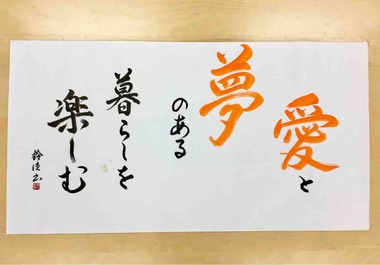 愛と
夢
のある
暮らしを
楽しむ